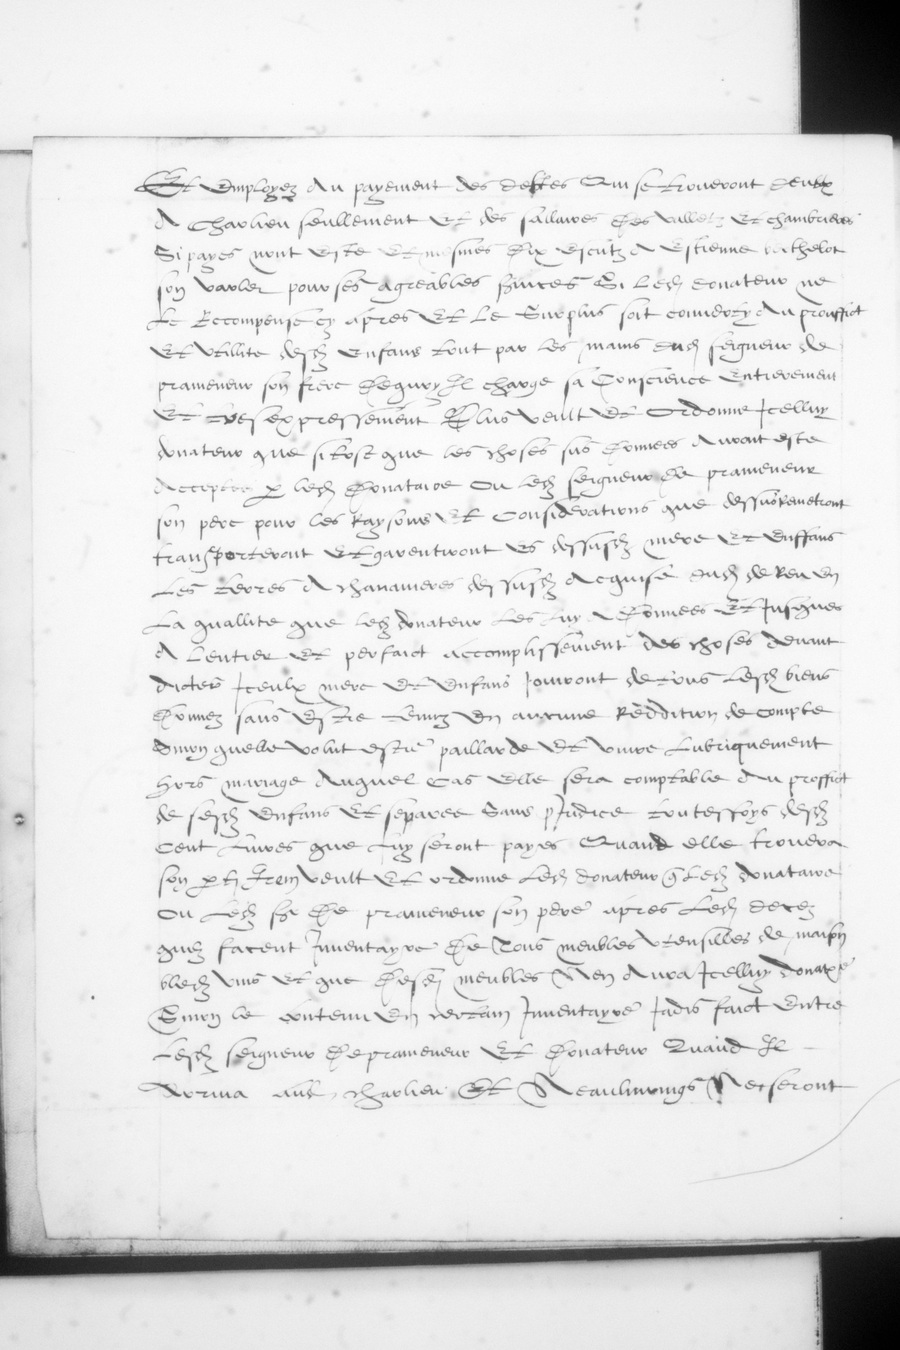 Et Employez Au payement des debtes Qui se trouveront deubz
A Charlieu seullement Et des sallaires des valletz Et chambrieres
Si payes nont Este Et mesmes dix escutz A Estienne bathelot
son varlet pour ses agreables services Si Led donateur ne
Le Recompense cy apres Et Le Surplus soit converty Au prouffict
Et Utillite desd Enfans tout par les mains dud seigneur de
prameneur son frere dequoy Il charge sa Conscience Entierement
Et tres expressement Plus veult Et Ordonne Icelluy
donateur que si tost que les choses sus donnees Auront este
Acceptees p led donataire Ou led seigneur de prameneur
son pere pour les Raysons Et Considerations que dessus Remetront
transporteront Et garentiront Es dessusd mere Et Enffans
Les terres A dessusd Acquise dud de En
La quallite que led donateur Les luy A donnees Et Jusques
A Lentier Et perfaict accomplissement des choses devant
dictes Iceulx mere Et Enfans Jouyront de tous Lesd biens
donnez sans Estre tenuz En aucune Reddition de compte
Sinon quelle volut estre paillarde Et vivre Lubriquement
hors mariage Auquel Cas Elle sera comptable Au proffict
de sesd Enfans Et separee Sans pJudice touteffoys desd
Cent Livres que Luy seront payes Quand elle trouvera
son party Item veult Et ordonne Led donateur q Led donataire
Ou Led sr De prameneur son pere apres Led decez
quez facent Inventayre De Tous meubles Utensilles de mayson
bledz vins Et que desd meubles Nen Aura Icelluy donatre
Sinon le contenu En certain Inventayre Jadis faict Entre
Lesd seigneur De prameneur Et donateur Quand Il
Arriva aud charlieu Et Neaulmoings Ne seront